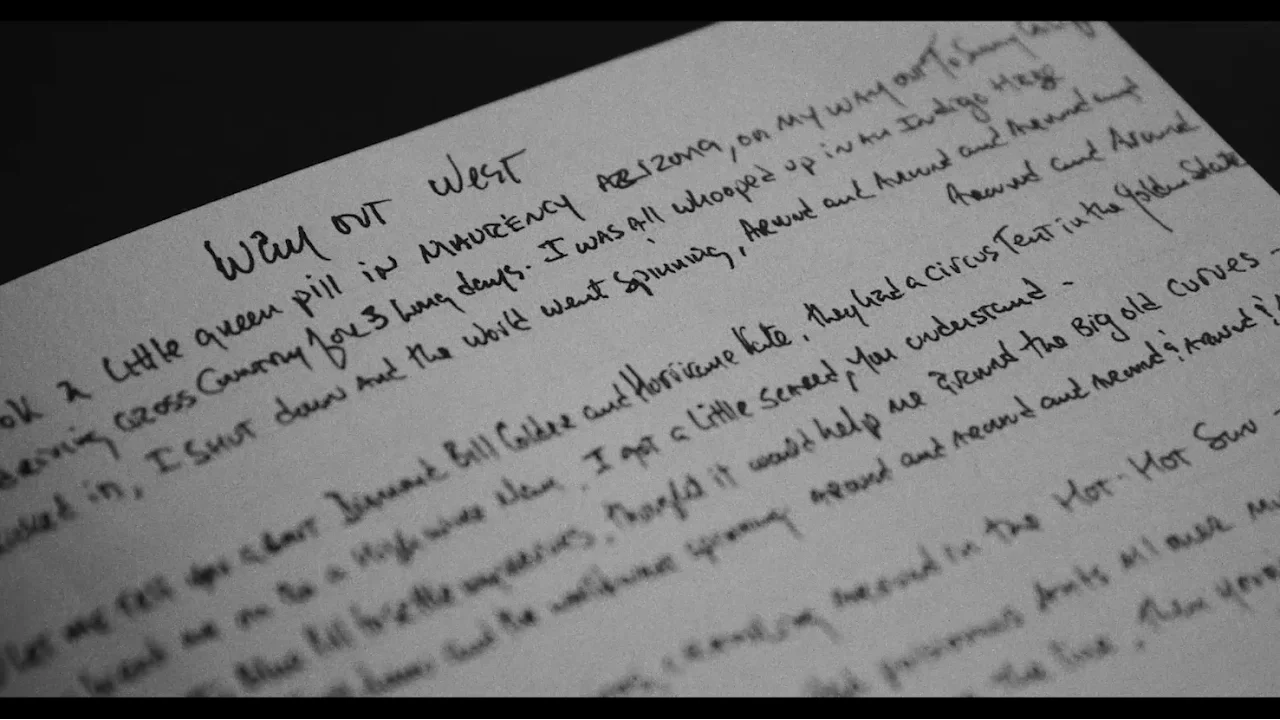 WAY OUT WEST
a little green pill in MAURENCY ARIZONA, on MY WAY OUT To Sunny
driving cross Country for 3 long days. I was all whooped up in an Indigo Haze
kicked in, I shut down and the world went spinning, Around and Around and Around and
Around and Around
let me tell you about Diamond Bill Colder and Hurricane Kate, they had a circus Tent in the golden State
me on to a High wire Now, I got a little scared, you understand -
Blue Pill to settle my nerves, thought it would help me around the Big old curves -
down and the world was spinning around and around and around & around &
crawling around in the Hot-Hot Sun -
poisonous Ants all over
the line, then